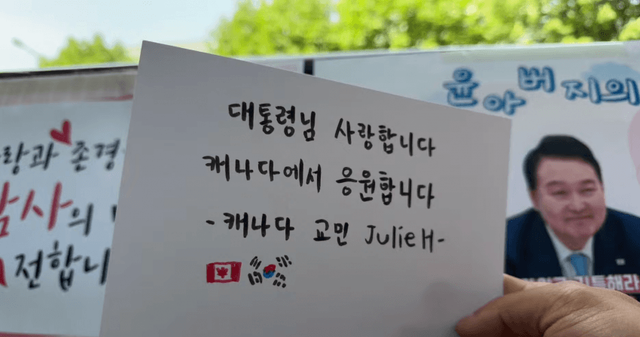 대통령님 사랑합니다
캐나다에서 응원합니다
- 캐나다 교민 Julie H -
윤아버지의
존경
전합니